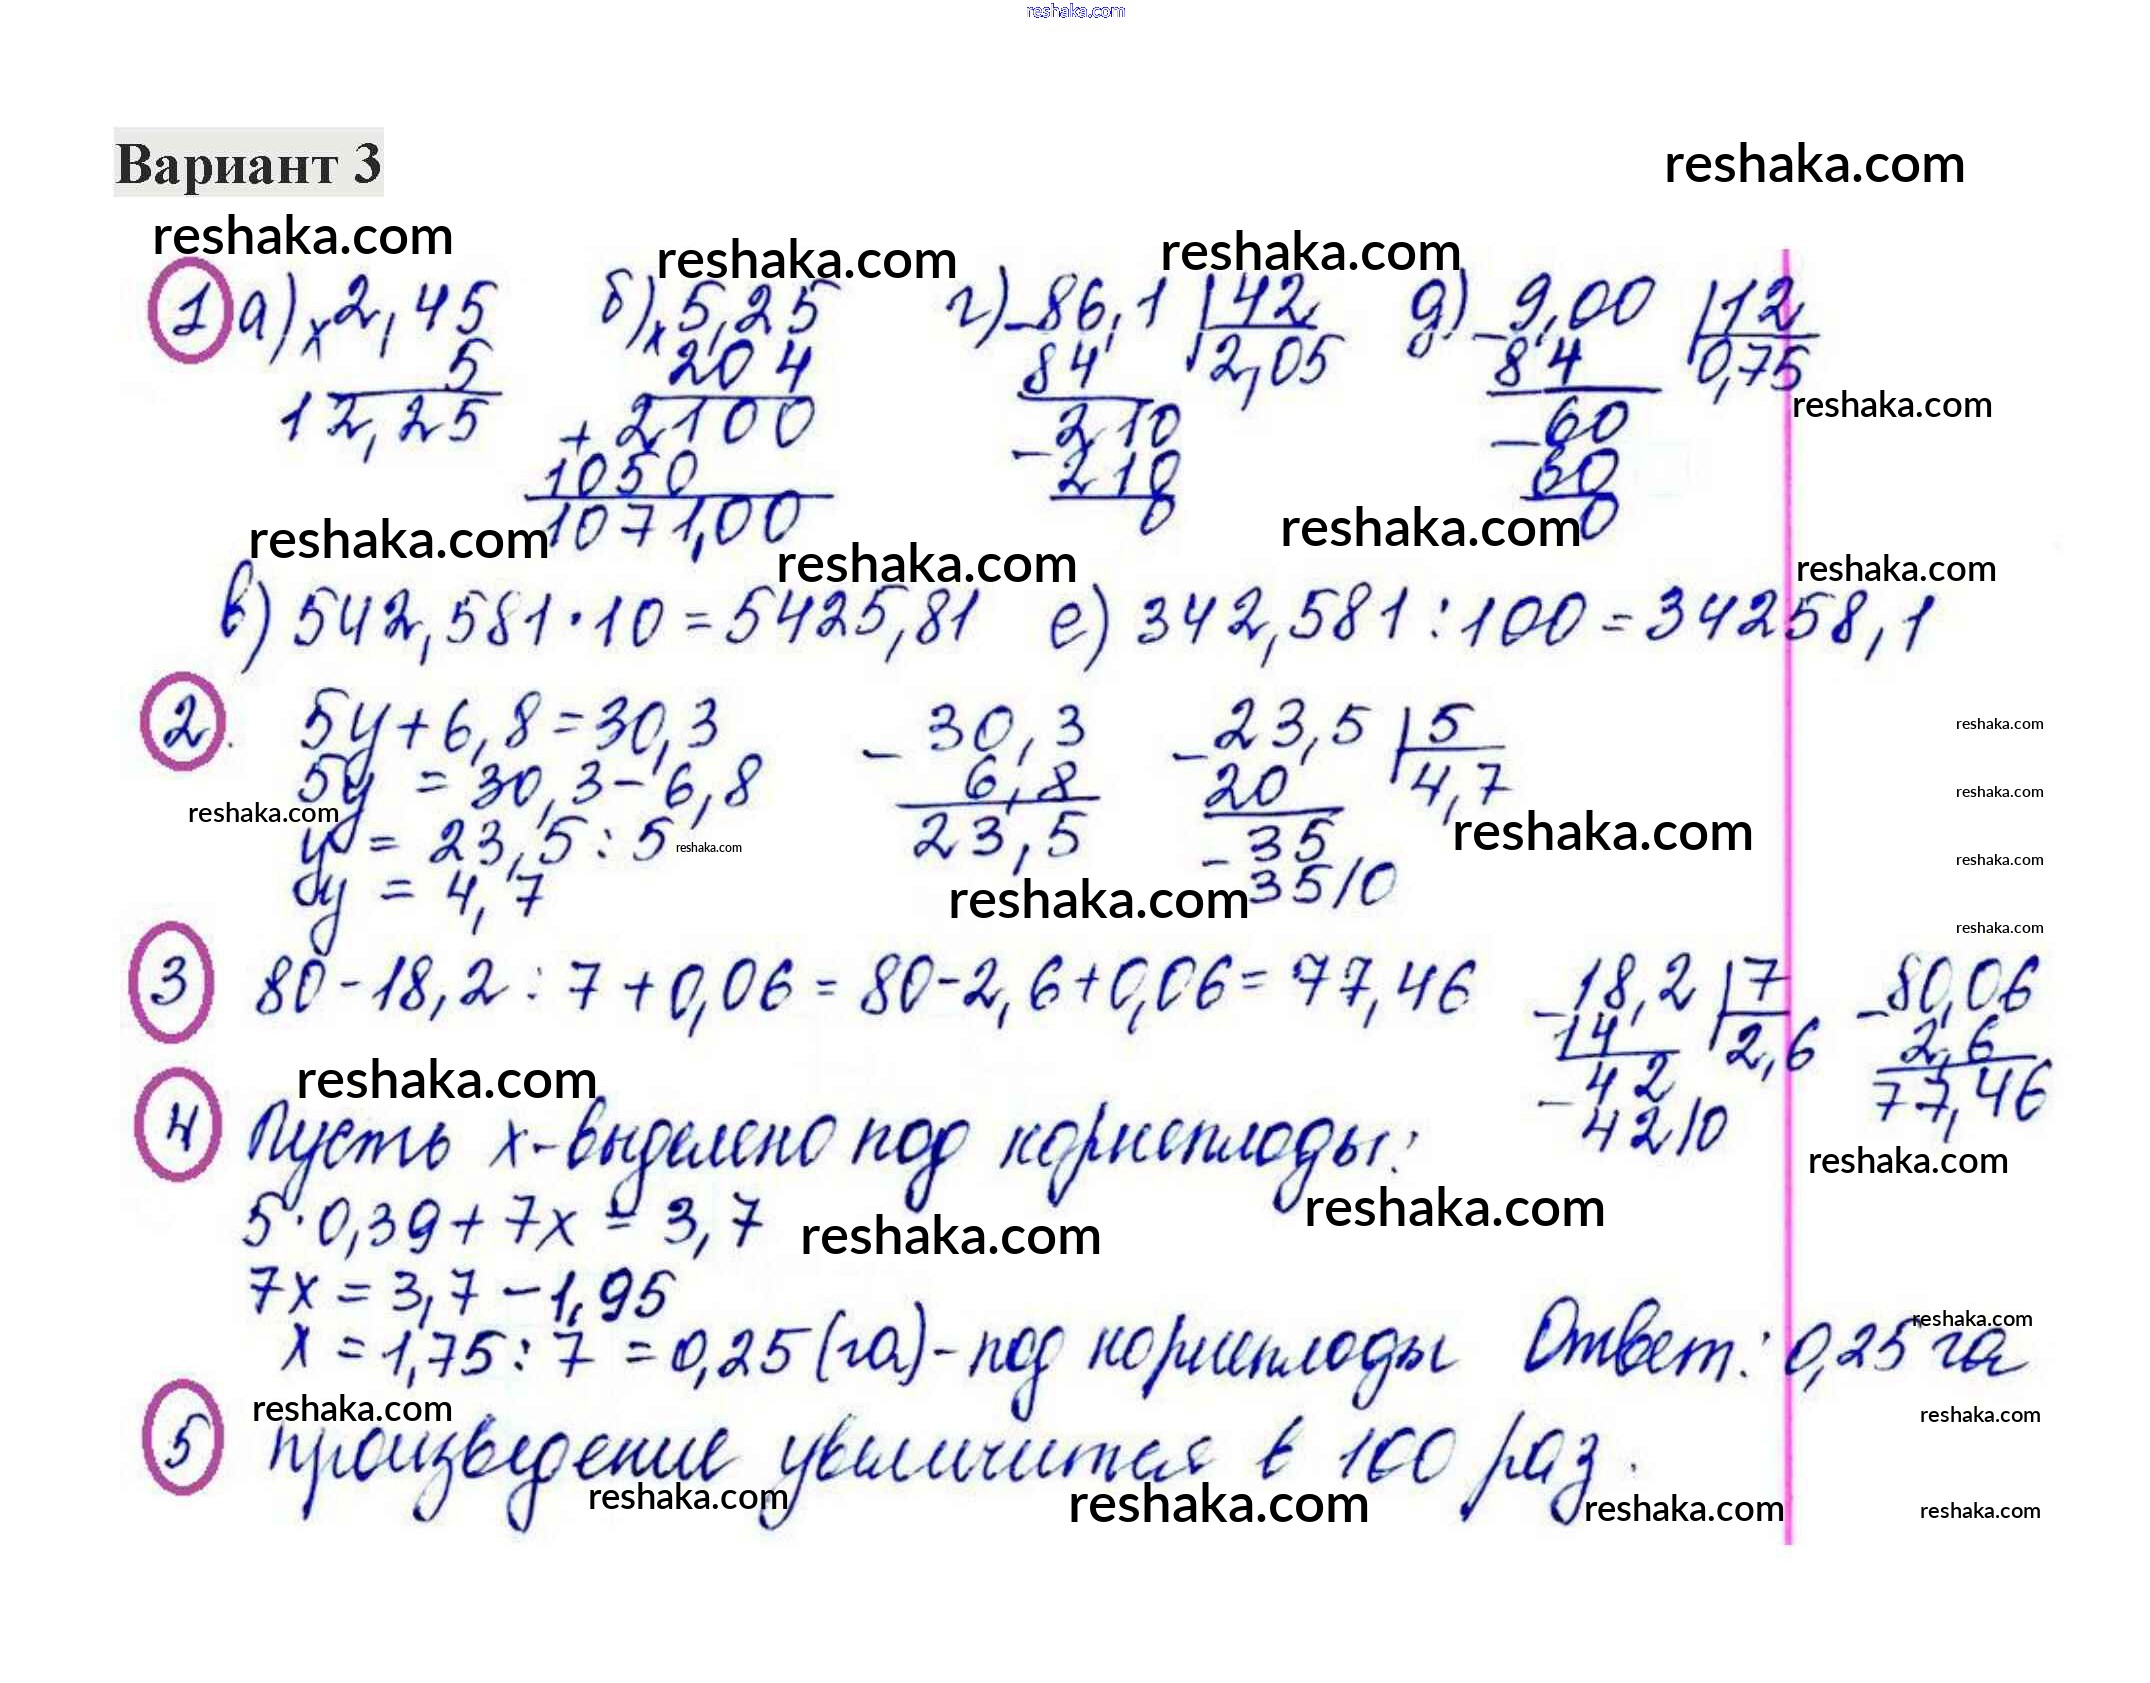 reshaka.com
Вариант 3
reshaka.com
reshaka.com
reshaka.com
reshaka.com
1 а) × 2,45 б) × 5,25 г) - 86,1 | 42 д) - 9,00 | 12
5 204 84 2,05 84 0,75
reshaka.com
12,25 + 2100 - 210 - 60
1050 210 60
1071,00 0 0
reshaka.com
reshaka.com
reshaka.com
reshaka.com
в) 542,581 · 10 = 5425,81 е) 342,581 : 100 = 34258,1
2. 5y + 6,8 = 30,3 - 30,3 - 23,5 | 5
reshaka.com
5y = 30,3 - 6,8 6,8 20 4,7
reshaka.com
reshaka.com
reshaka.com
y = 23,5 : 5 23,5 - 35
reshaka.com
reshaka.com
y = 4,7 35/0
reshaka.com
reshaka.com
3 80 - 18,2 : 7 + 0,06 = 80 - 2,6 + 0,06 = 77,46 - 18,2 | 7 - 80,06
14 2,6 2,6
reshaka.com
- 42 77,46
42/0
4 Пусть x - выделено под корнеплоды:
reshaka.com
reshaka.com
reshaka.com
5 · 0,39 + 7x = 3,7
7x = 3,7 - 1,95
reshaka.com
x = 1,75 : 7 = 0,25 (га) - под корнеплоды Ответ: 0,25 га
reshaka.com
reshaka.com
5 произведение увеличится в 100 раз.
reshaka.com
reshaka.com
reshaka.com
reshaka.com